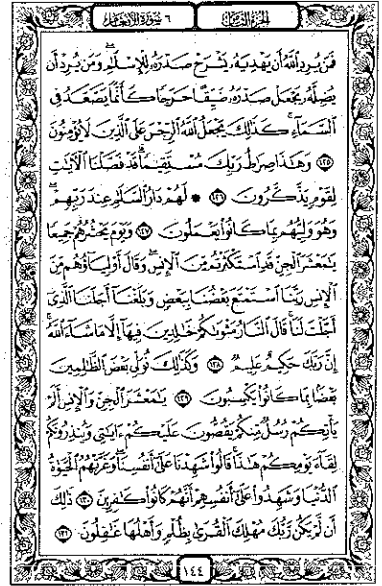 الجزء الثامن
٦ سورة الأنعام
فَمَن يُرِدِ ٱللَّهُ أَن يَهْدِيَهُۥ يَشْرَحْ صَدْرَهُۥ لِلْإِسْلَٰمِ ۖ وَمَن يُرِدْ أَن
يُضِلَّهُۥ يَجْعَلْ صَدْرَهُۥ ضَيِّقًا حَرَجًا كَأَنَّمَا يَصَّعَّدُ فِى
ٱلسَّمَآءِ ۚ كَذَٰلِكَ يَجْعَلُ ٱللَّهُ ٱلرِّجْسَ عَلَى ٱلَّذِينَ لَا يُؤْمِنُونَ
١٢٥ وَهَٰذَا صِرَٰطُ رَبِّكَ مُسْتَقِيمًا ۗ قَدْ فَصَّلْنَا ٱلْءَايَٰتِ
لِقَوْمٍ يَذَّكَّرُونَ ١٢٦ ۞ لَهُمْ دَارُ ٱلسَّلَٰمِ عِندَ رَبِّهِمْ ۖ
وَهُوَ وَلِيُّهُم بِمَا كَانُوا۟ يَعْمَلُونَ ١٢٧ وَيَوْمَ يَحْشُرُهُمْ جَمِيعًا
يَٰمَعْشَرَ ٱلْجِنِّ قَدِ ٱسْتَكْثَرْتُم مِّنَ ٱلْإِنسِ ۖ وَقَالَ أَوْلِيَآؤُهُم مِّنَ
ٱلْإِنسِ رَبَّنَا ٱسْتَمْتَعَ بَعْضُنَا بِبَعْضٍ وَبَلَغْنَآ أَجَلَنَا ٱلَّذِىٓ
أَجَّلْتَ لَنَا ۚ قَالَ ٱلنَّارُ مَثْوَىٰكُمْ خَٰلِدِينَ فِيهَآ إِلَّا مَا شَآءَ ٱللَّهُ ۗ
إِنَّ رَبَّكَ حَكِيمٌ عَلِيمٌ ١٢٨ وَكَذَٰلِكَ نُوَلِّى بَعْضَ ٱلظَّٰلِمِينَ
بَعْضًۢا بِمَا كَانُوا۟ يَكْسِبُونَ ١٢٩ يَٰمَعْشَرَ ٱلْجِنِّ وَٱلْإِنسِ أَلَمْ
يَأْتِكُمْ رُسُلٌ مِّنكُمْ يَقُصُّونَ عَلَيْكُمْ ءَايَٰتِى وَيُنذِرُونَكُمْ
لِقَآءَ يَوْمِكُمْ هَٰذَا ۚ قَالُوا۟ شَهِدْنَا عَلَىٰٓ أَنفُسِنَا ۖ وَغَرَّتْهُمُ ٱلْحَيَوٰةُ
ٱلدُّنْيَا وَشَهِدُوا۟ عَلَىٰٓ أَنفُسِهِمْ أَنَّهُمْ كَانُوا۟ كَٰفِرِينَ ١٣٠ ذَٰلِكَ
أَن لَّمْ يَكُن رَّبُّكَ مُهْلِكَ ٱلْقُرَىٰ بِظُلْمٍ وَأَهْلُهَا غَٰفِلُونَ ١٣١
١٤٤